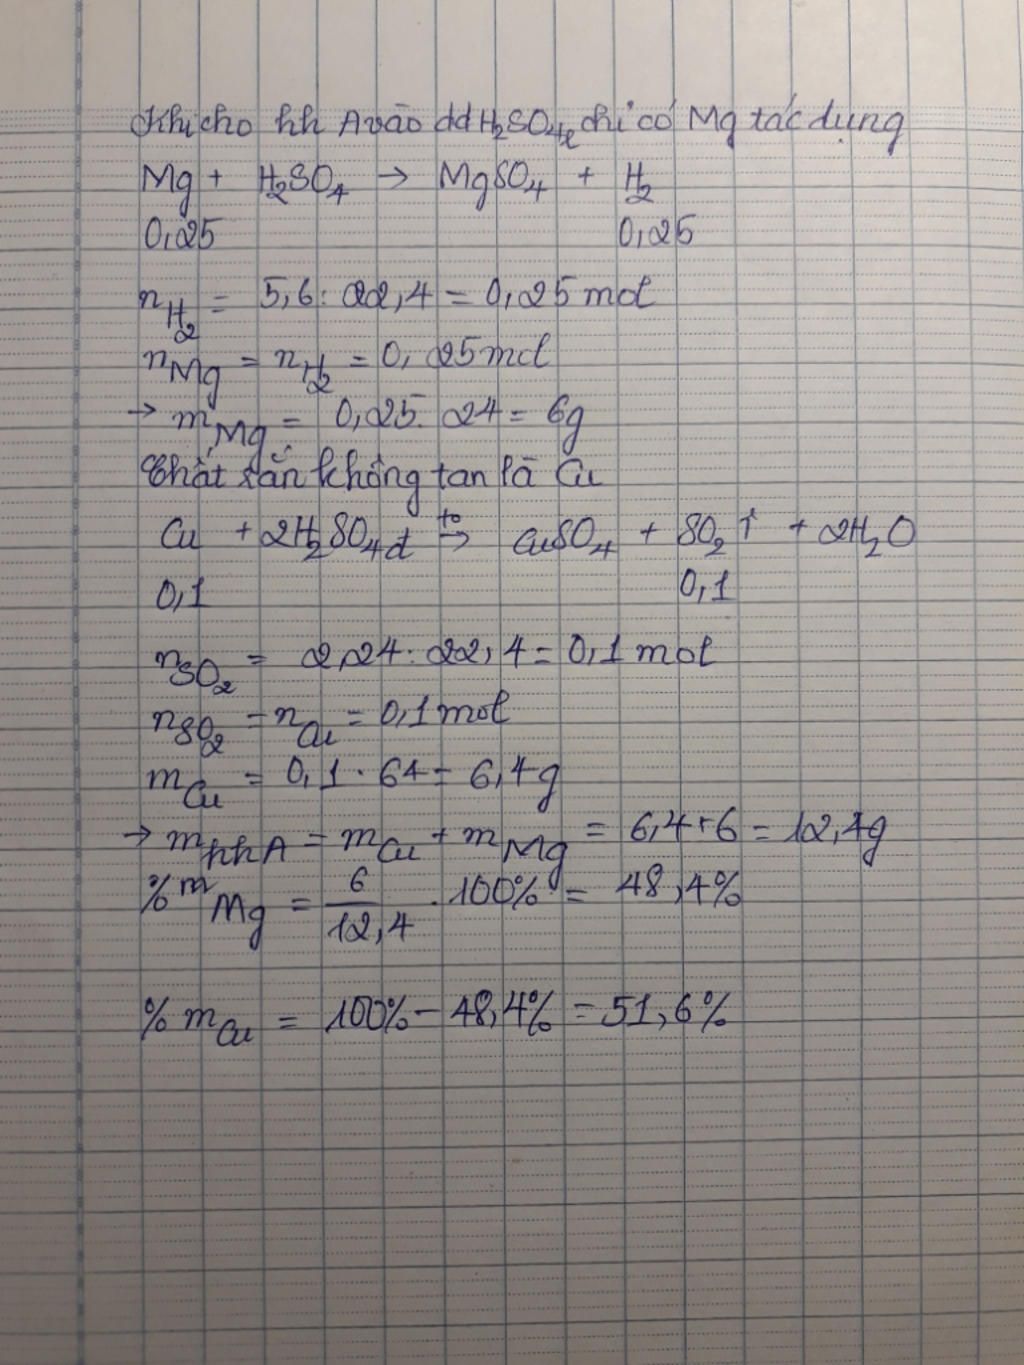 Khi cho hh A vào dd H₂SO₄ₗ chỉ có Mg tác dụng
Mg + H₂SO₄ → MgSO₄ + H₂
0,25 0,25
n_H₂ = 5,6 : 22,4 = 0,25 mol
n_Mg = n_H₂ = 0,25 mol
→ m_Mg = 0,25 . 24 = 6g
Chất rắn không tan là Cu
Cu + 2H₂SO₄đ →(t°) CuSO₄ + SO₂↑ + 2H₂O
0,1 0,1
n_SO₂ = 2,24 : 22,4 = 0,1 mol
n_SO₂ = n_Cu = 0,1 mol
m_Cu = 0,1 . 64 = 6,4g
→ m_hhA = m_Cu + m_Mg = 6,4 + 6 = 12,4g
%m_Mg = 6/12,4 . 100% = 48,4%
%m_Cu = 100% - 48,4% = 51,6%